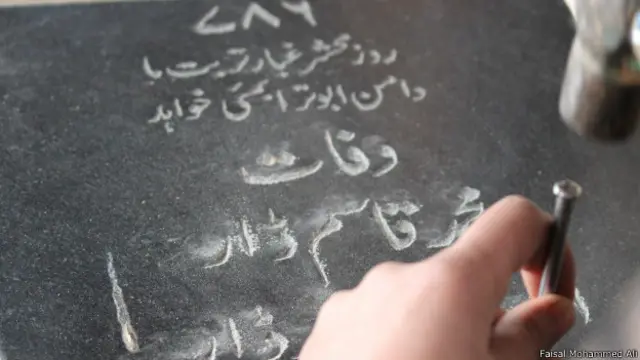 ۷۸۶
روز محشر غبار تربت با
دامن ابوتر ابمئی خواہد
وفات
محمد قاسم ڈار
ڈار
Faisal Mohammed Ali